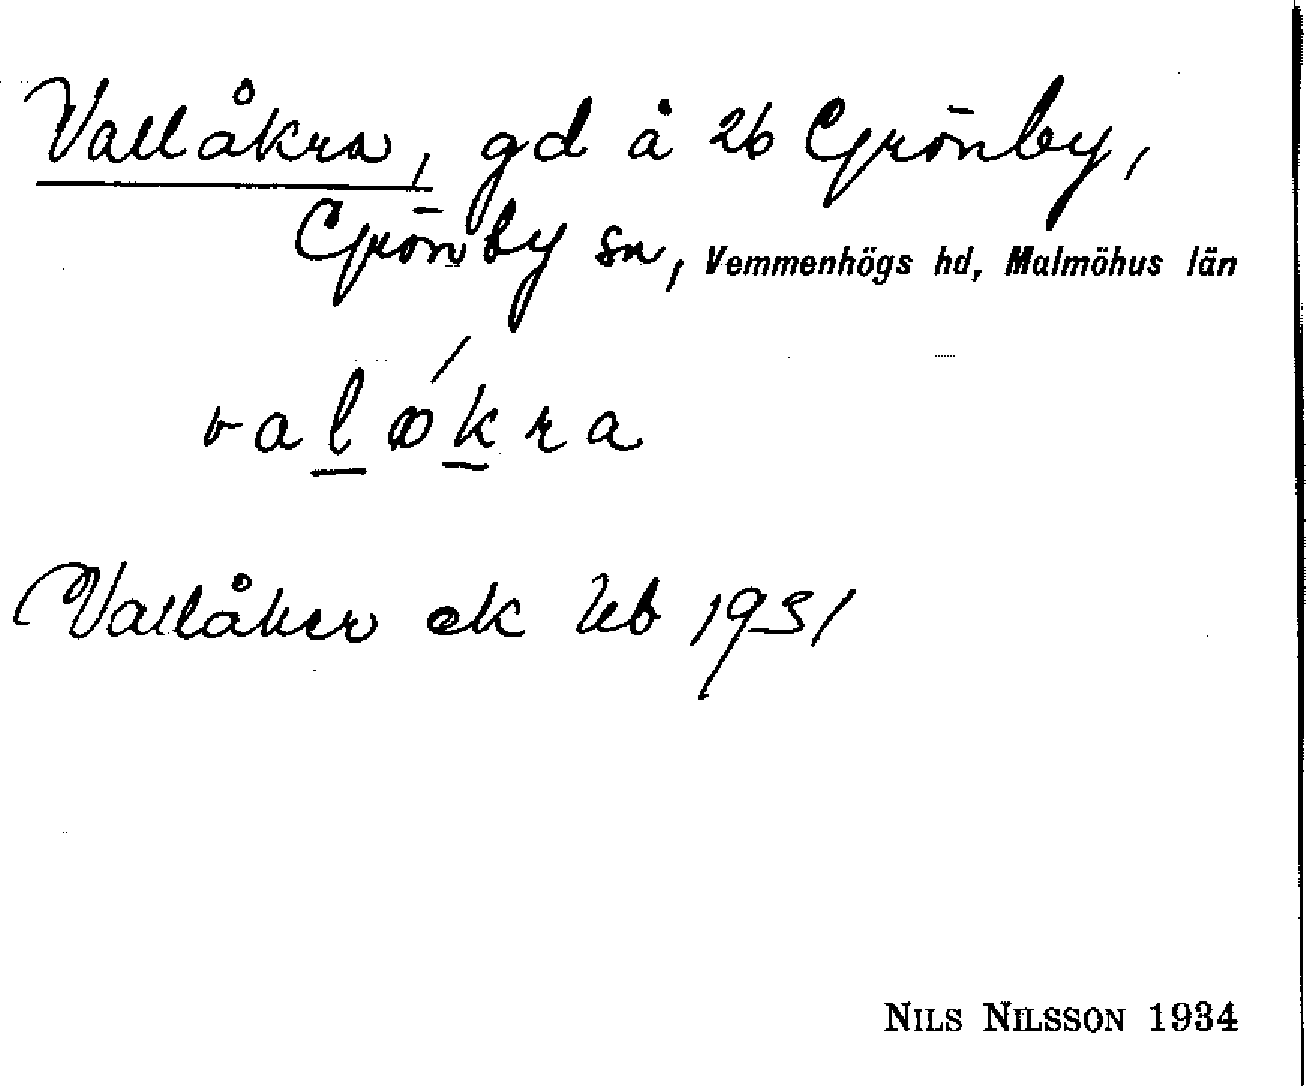 Vallåkra, gd å 26 Grönby,
Grönby sn, Vemmenhögs hd, Malmöhus län
valøkra
Vallåker ek Ub 1931
NILS NILSSON 1934